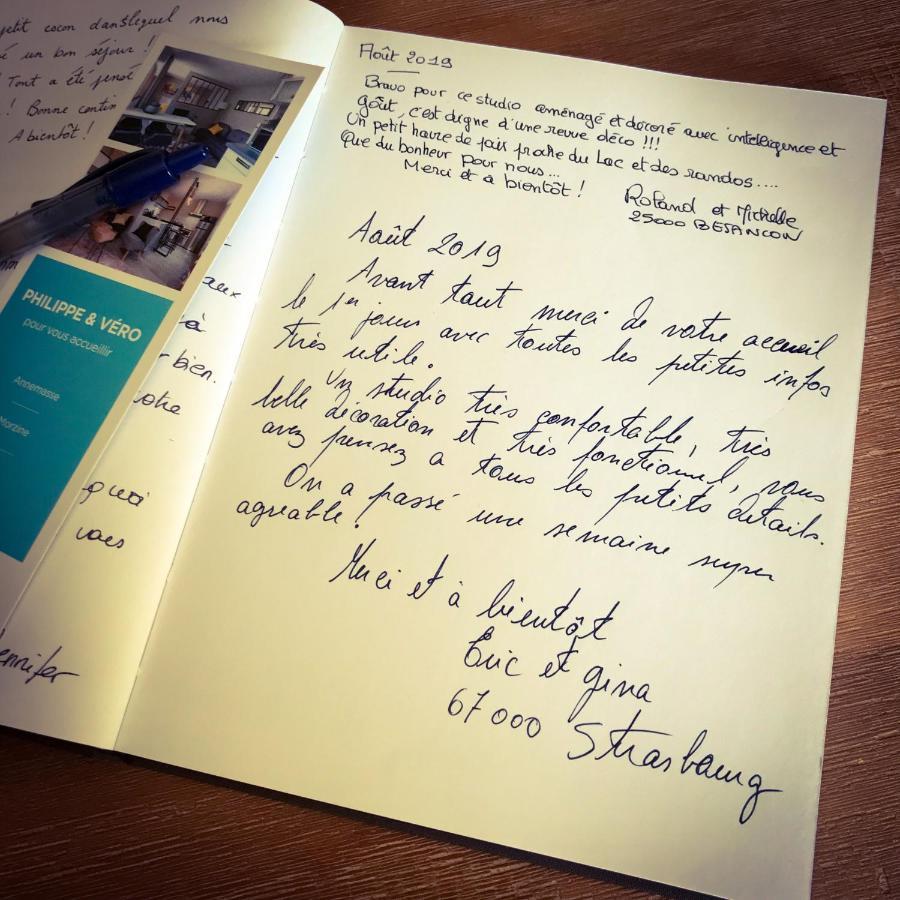 petit cocon dans lequel nous
é un bon séjour !
Tout a été pensé
! Bonne contin
A bientôt !
PHILIPPE & VÉRO
pour vous accueillir
Annemasse
Morzine
aux
à
bien.
votre
quoi
vous
ennifer
Août 2019
Bravo pour ce studio aménagé et décoré avec intelligence et
goût, c'est digne d'une revue déco !!!
Un petit havre de paix proche du Lac et des randos....
Que du bonheur pour nous...
Merci et à bientôt !
Roland et Michelle
25000 BESANCON
Août 2019
Avant tout merci de votre accueil
le 1er jour avec toutes les petites infos
très utile.
Un studio très confortable, très
belle décoration et très fonctionnel, vous
avez pensez a tous les petits détails.
On a passé une semaine super
agréable.
Merci et à bientôt
Eric et gina
67000 Strasbourg